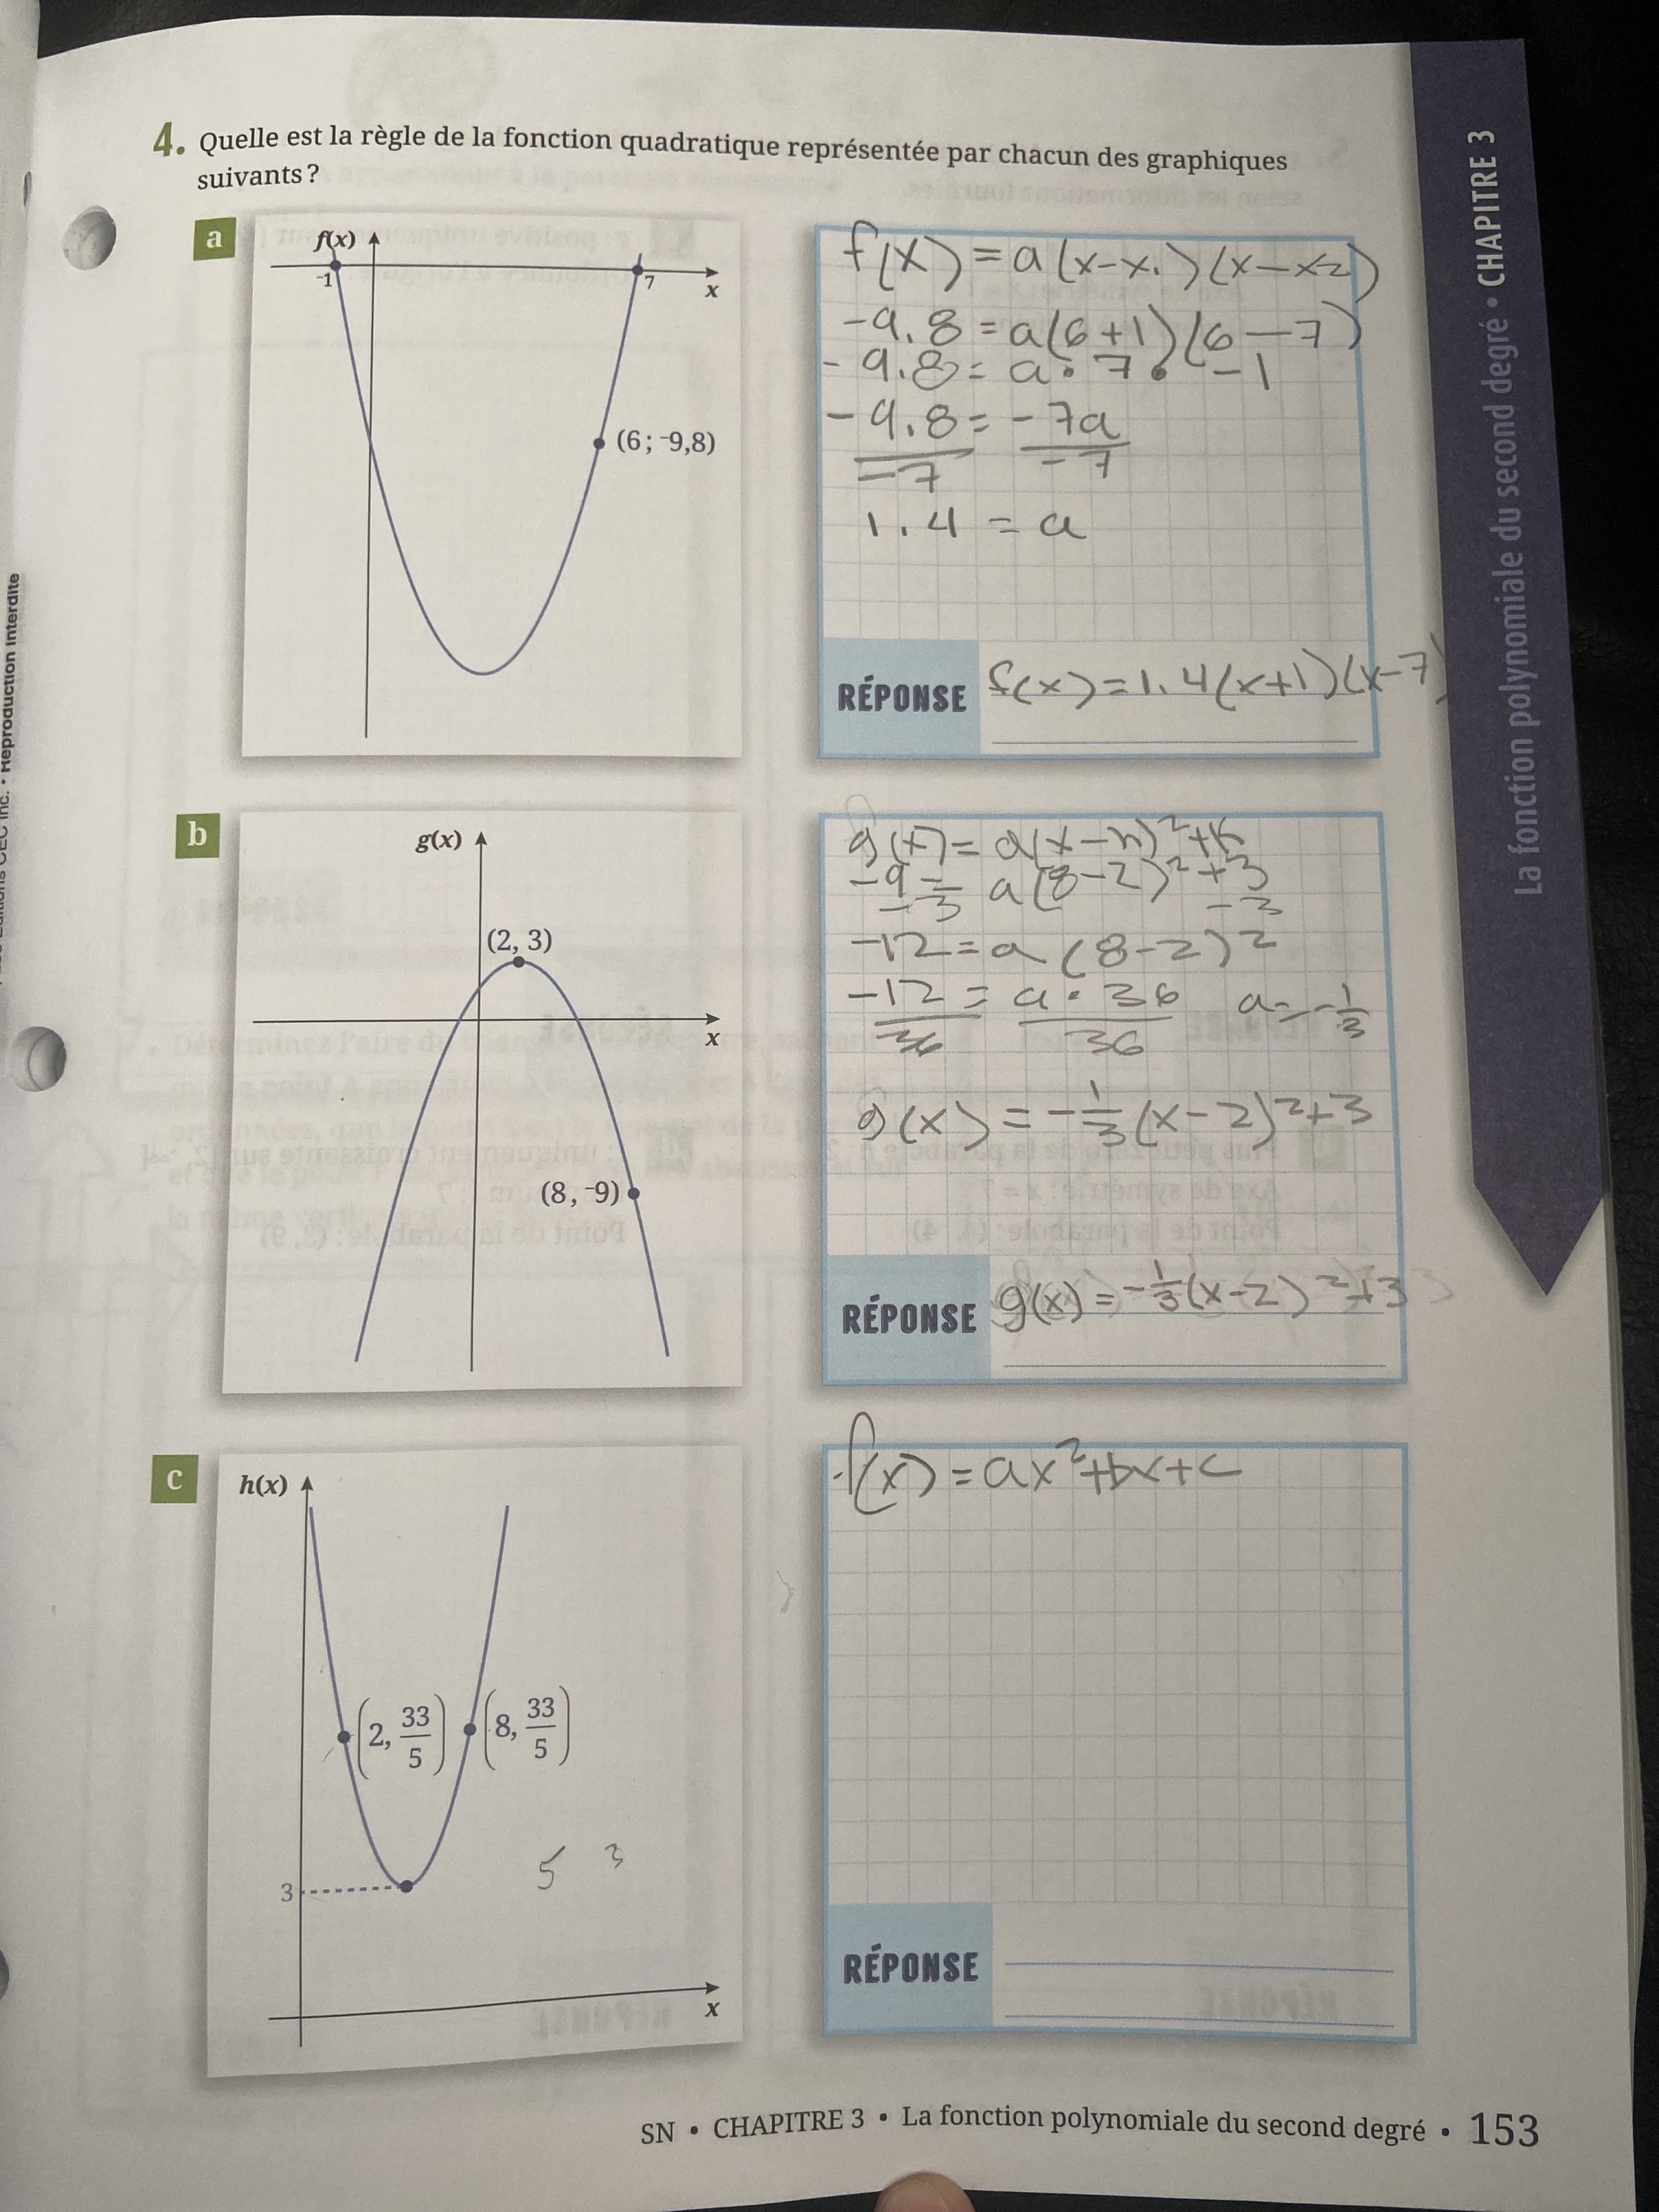 4. Quelle est la règle de la fonction quadratique représentée par chacun des graphiques
suivants ?
a
f(x)
-1
7
x
(6 ; -9,8)
f(x) = a(x-x1)(x-x2)
-9.8 = a(6+1)(6-7)
-9.8 = a • 7 • -1
-9.8 = -7a
-7 -7
1.4 = a
RÉPONSE f(x) = 1.4(x+1)(x-7)
b
g(x)
(2, 3)
x
(8, -9)
g(x) = a(x-h)²+k
-9 = a(8-2)²+3
-3 -3
-12 = a(8-2)²
-12 = a • 36 a = -1/3
36 36
g(x) = -1/3(x-2)²+3
RÉPONSE g(x) = -1/3(x-2)²+3
c
h(x)
(2, 33/5) (8, 33/5)
3
5 3
x
f(x) = ax²+bx+c
RÉPONSE
SN • CHAPITRE 3 • La fonction polynomiale du second degré • 153
La fonction polynomiale du second degré • CHAPITRE 3
Inc. • Reproduction interdite